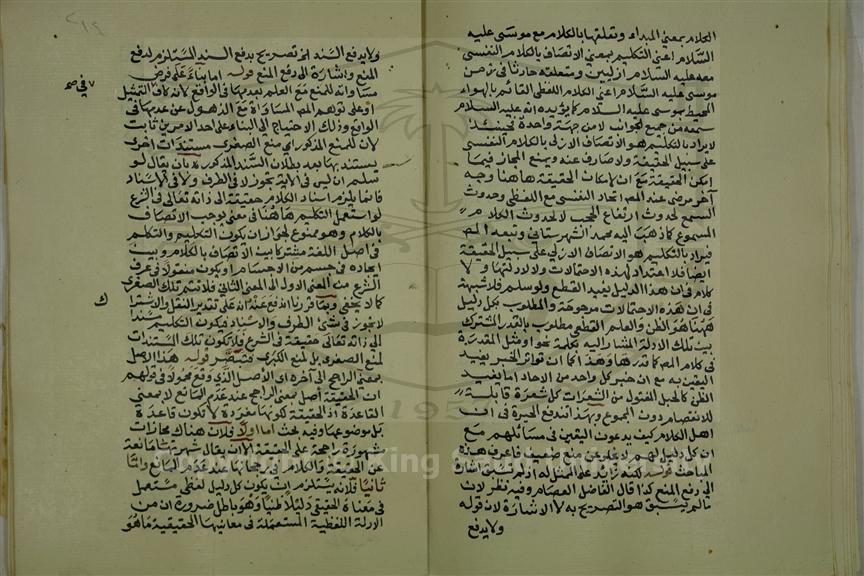 الكلام بمعني المبداء وتعلقها بالكلام مع موسي عليه
السلام اعني التكليم بمعني الاتصاف بالكلام النفسي
معه عليه السلام ازليين ومتعلقه حادثا في زمن
موسي عليه السلام اعني الكلام اللفظي القائم بالهواء
المحيط بموسي عليه السلام كما يؤيده انه عليه السلام
سمعه من جميع الجوانب لا من جهة واحدة فحينئذ
لا يراد بالتكليم هو الاتصاف الازلي بالكلام النفسي
علي سبيل الحقيقة ولا صارف عنه ويمنع المجاز فيما
امكن الحقيقة مع ان لامكان الحقيقة هاهنا وجه
آخر مرضي عند المص اتحاد النفسي مع اللفظي وحدوث
السمع لحدوث ارتفاع الحجب لا لحدوث الكلام
المسموع كما ذهب اليه محمد الشهرستاني وتبعه المص
فيراد بالتكليم هو الاتصاف الازلي علي سبيل الحقيقة
ايضا فلا اعتداد لهذه الاحتمالات ولا دلالتها ولا
كلام في ان هذا الدليل يفيد القطع ولو سلم فلا شبهة
في ان هذه الاحتمالات مرجوحة والمطلوب بكل دليل
ههنا هو الظن والعلم القطعي مطلوب بالقدر المشترك
بين تلك الادلة المشار اليه بكلمة نحو ومثل المقدرة
في كلام المص كما قدرها وهذا كما ان تواتر الخبر يفيد
اليقين به مع ان خبر كل واحد من الاحاد انما يفيد
الظن كالحبل المفتول من الشعرات كل شعرة قابلة
للانفصام دون المجموع وبهذا اندفع الحيرة في ان
اهل الكلام كيف يدعون اليقين في مسائلهم مع
ان كل دليل لهم لا يخلو عن منع ضعيف فاعرف هذه
الي دفع المنع كذا قال الفاضل العصام وفيه نظر لان
ما لم يسبق هو التصريح به لا الاشارة لان قوله
ولا يدفع
٢١٤
ولا يدفع السند الخ تصريح بدفع السند المستلزم لدفع
المنع واشارة الي دفع المنع قوله اما بناء علي فرض
مساواته للمنع مع العلم بعدمها في الواقع لانه كاف
او علي توهم المص المساواة مع الذهول عن عدمها في
الواقع وذلك الاحتياج الي البناء علي احد الامرين ثابت
لان للمنع المذكور اي منع الصغري مستندات اخري
يستند بها بعد بطلان السند المذكور بان يقال لو
سلم ان ليس في الآية تجوز لا في الطرف ولا في الاسناد
فانما يلزم اسناد الكلام حقيقة الي ذاته تعالي في الشرع
لو استعمل التكليم هاهنا في معني يوجب الاتصاف
بالكلام وهو ممنوع لجواز ان يكون التكليم والتكلم
في اصل اللغة مشتركا بين الاتصاف بالكلام وبين
ايجاده في جسم من الاجسام او يكون منقولا في عرف
الشرع من المعني الاول الي المعني الثاني فلا تتم تلك الصغري
كما لا يخفي وبما قررنا اندفع عنه ان علي تقدير النقل والاشتراك
لا تجوز في شئ الطرف والاسناد فيكون التكليم مسندا
الي ذاته تعالي حقيقة في الشرع فلا يكون تلك السندات
لمنع الصغري بل لمنع الكبري فتبصر قوله هذا الاصل
بمعني الراجح الي آخره اي الاصل الذي وقع محمولا في قولهم
ان الحقيقة اصل بمعني الراجح عند عدم المانع لا بمعني
القاعدة اذ الحقيقة لكونها مفردة لا تكون قاعدة
بل موضوعها وفيه بحث اما اولا فلان هناك مجازات
مشهورة راجحة علي الحقيقة الا ان يقال شهرتها مانعة
عن الحقيقة والكلام في رجحانها عند عدم المانع واما
ثانيا فلانه يستلزم ان يكون كل دليل لفظي مستعمل
في معناه الحقيقي دليلا ظنيا وهو باطل ضرورة ان من
الادلة اللفظية المستعملة في معانيها الحقيقية ما هو